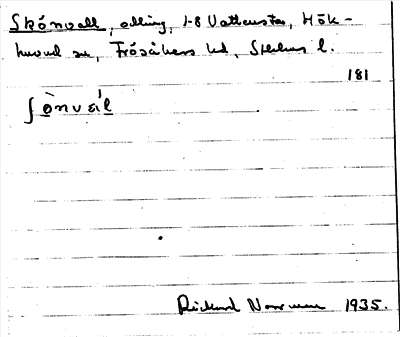 Skönvall, odling, 1-8 Vattensta, Hök-
huvud sn, Frösåkers hd, Sthlms l.
181
ʃònvál
Rickard Norrman 1935.